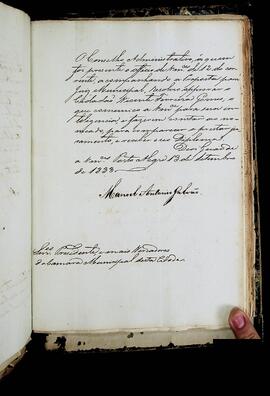 O Conselho Administrativo, a quem
foi presente o officio de Vm.ces de 12 do cor-
rente, acompanhando a Proposta para
Juiz Municipal, resolveo approvar o
Cidadão Vicente Ferreira Gomes, o
que communico a Vm.ces para sua inte-
ligencia, e fazerem constar ao no-
meado para comparecer a prestar ju-
ramento, e receber seu Diploma.
Deos Guarde
a Vm.ces Porto Alegre 13 de Setembro
de 1838.
Manoel Antonio Galvão
Snr.es Presidente e mais Vereadores
da Camara Municipal desta Cidade.